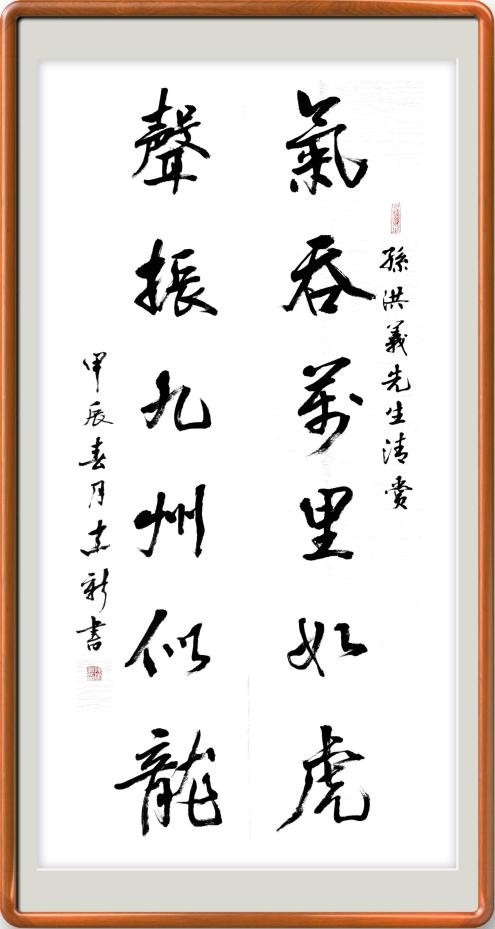 孫洪義先生清赏
氣吞萬里如虎
聲振九州似龍
甲辰春月志新書